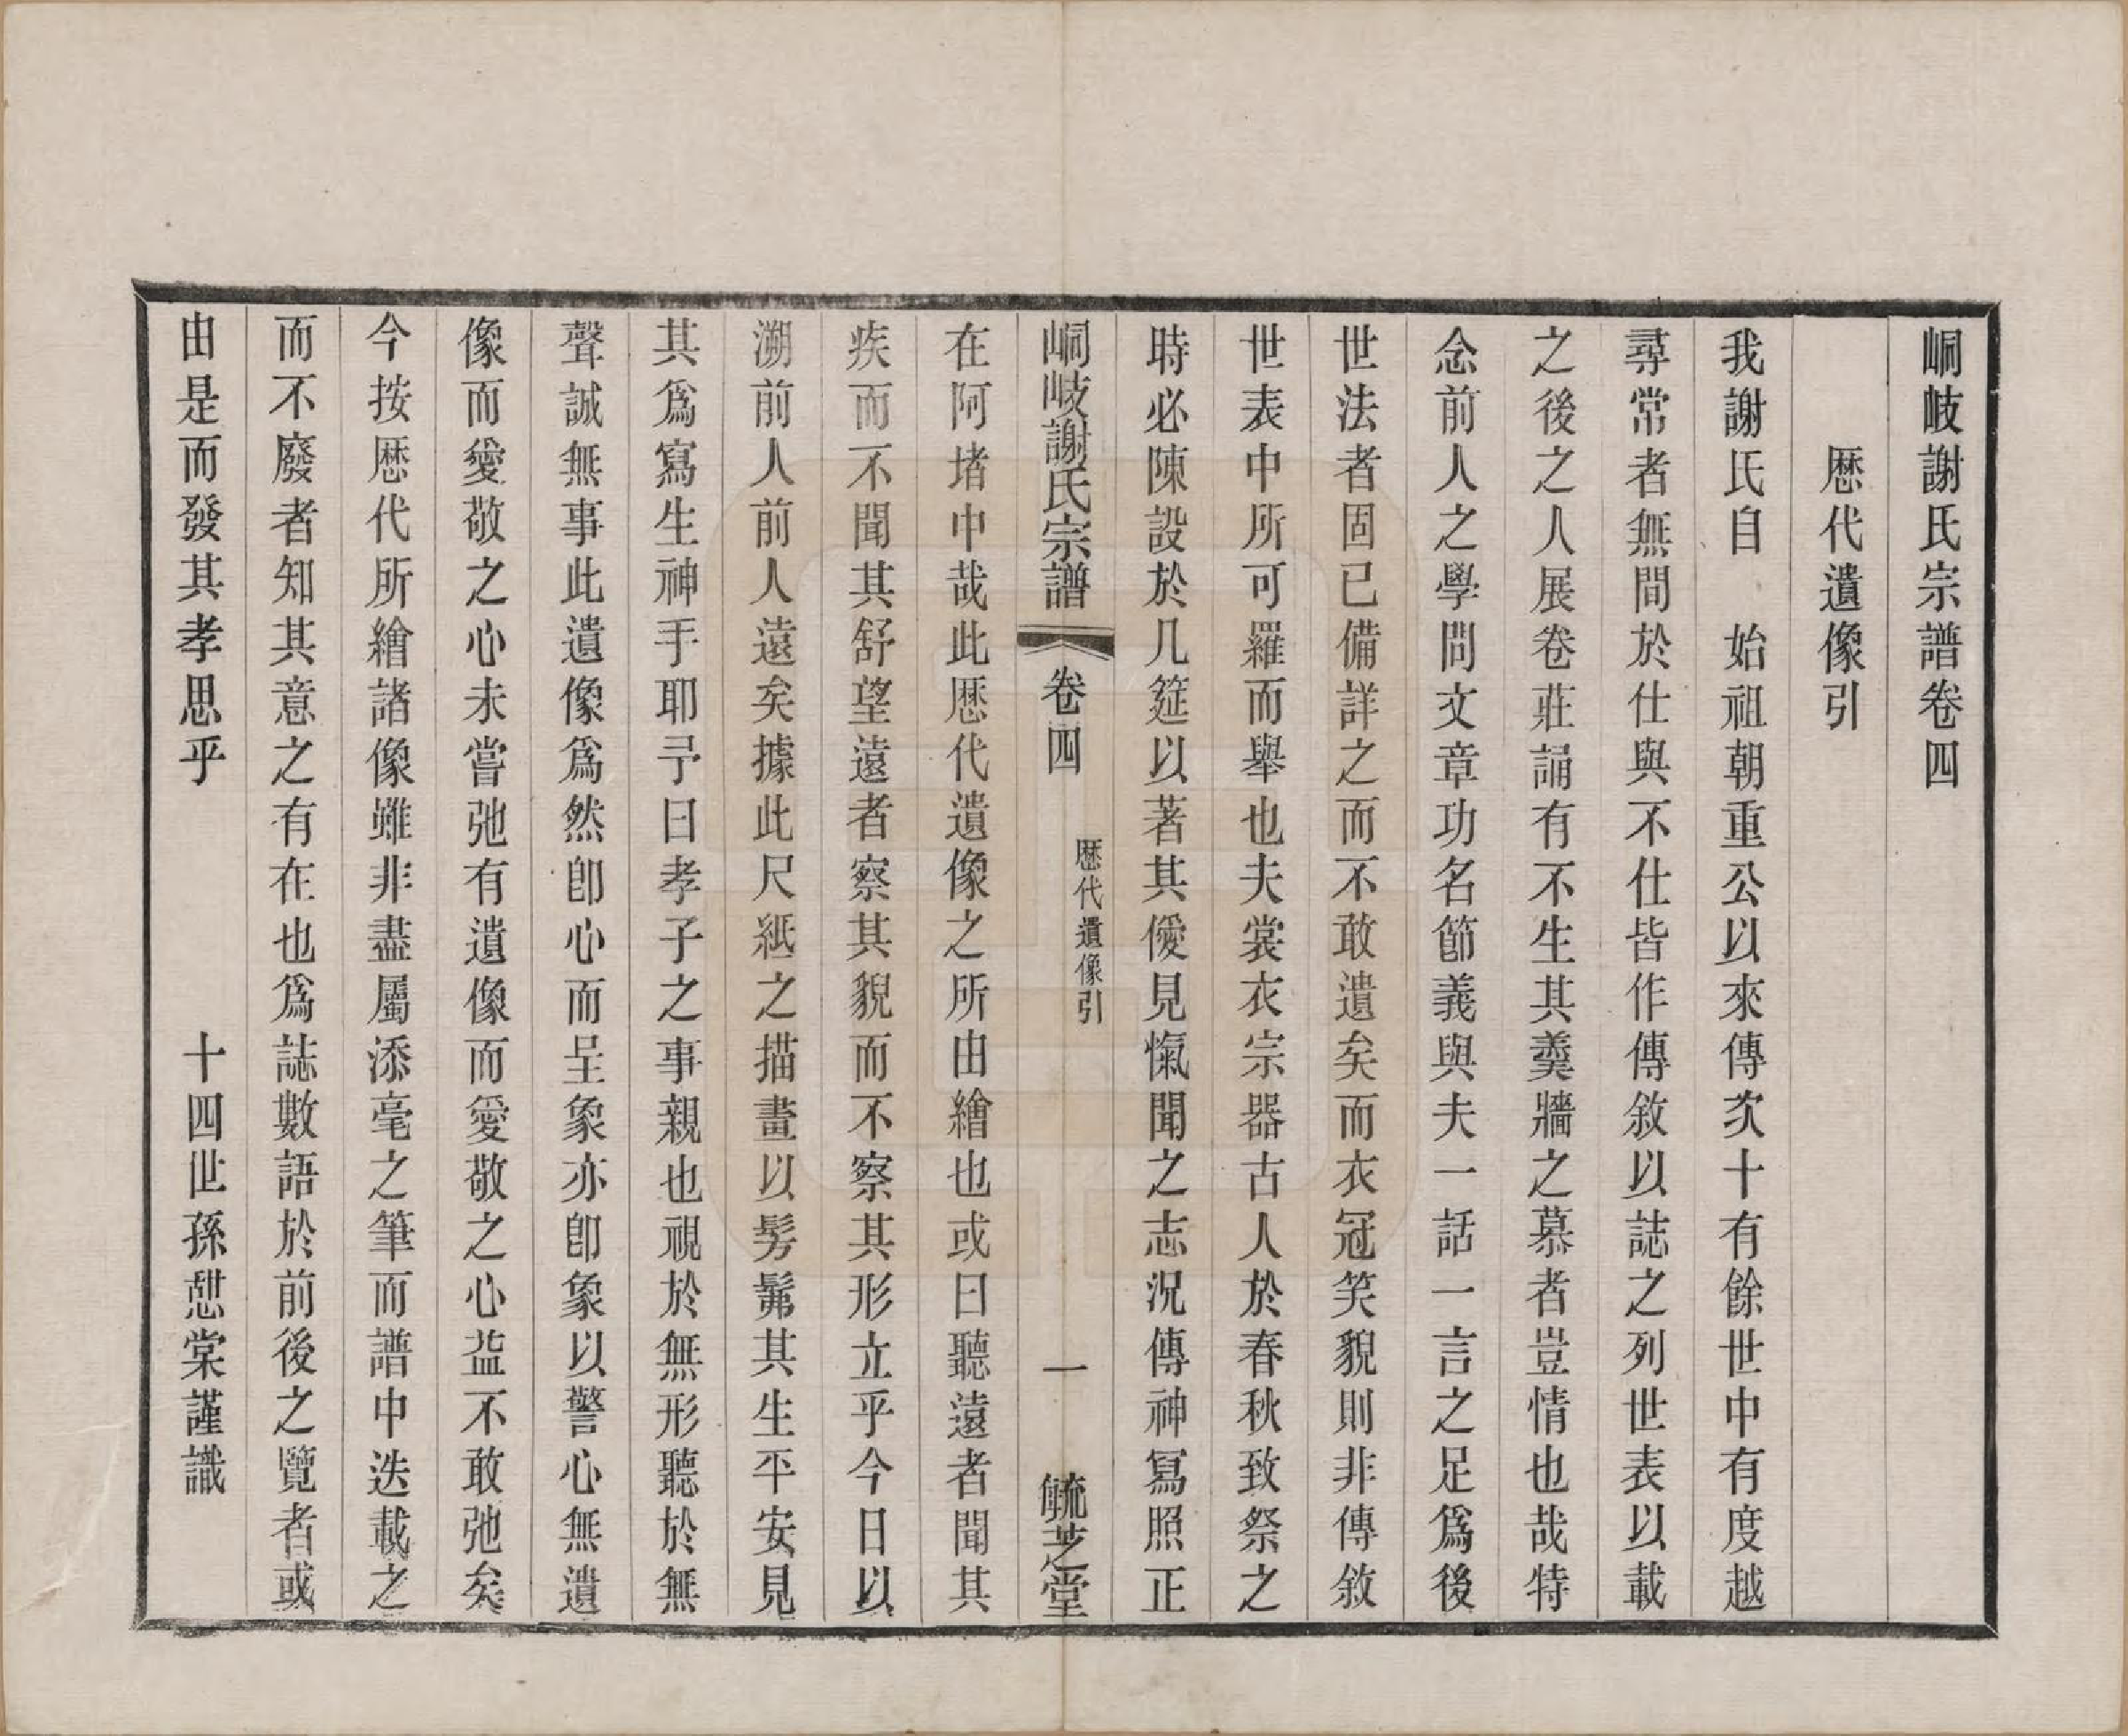 峒岐謝氏宗譜卷四
歷代遺像引
我謝氏自　始祖朝重公以來傳次十有餘世中有度越
尋常者無間於仕與不仕皆作傳敘以誌之列世表以載
之後之人展卷莊誦有不生其羹牆之慕者豈情也哉特
念前人之學問文章功名節義與夫一話一言之足爲後
世法者固已備詳之而不敢遺矣而衣冠笑貌則非傳敘
世表中所可羅而舉也夫裳衣宗器古人於春秋致祭之
時必陳設於几筵以著其僾見愾聞之志況傳神寫照正
峒岐謝氏宗譜　卷四　歷代遺像引　一　毓芝堂
在阿堵中哉此歷代遺像之所由繪也或曰聽遠者聞其
疾而不聞其舒望遠者察其貌而不察其形立乎今日以
溯前人前人遠矣據此尺紙之描畫以髣髴其生平安見
其爲寫生神手耶予曰孝子之事親也視於無形聽於無
聲誠無事此遺像爲然卽心而呈象亦卽象以警心無遺
像而愛敬之心未嘗弛有遺像而愛敬之心益不敢弛矣
今按歷代所繪諸像雖非盡屬添毫之筆而譜中迭載之
而不廢者知其意之有在也爲誌數語於前後之覽者或
由是而發其孝思乎　　　　十四世孫憇棠謹識